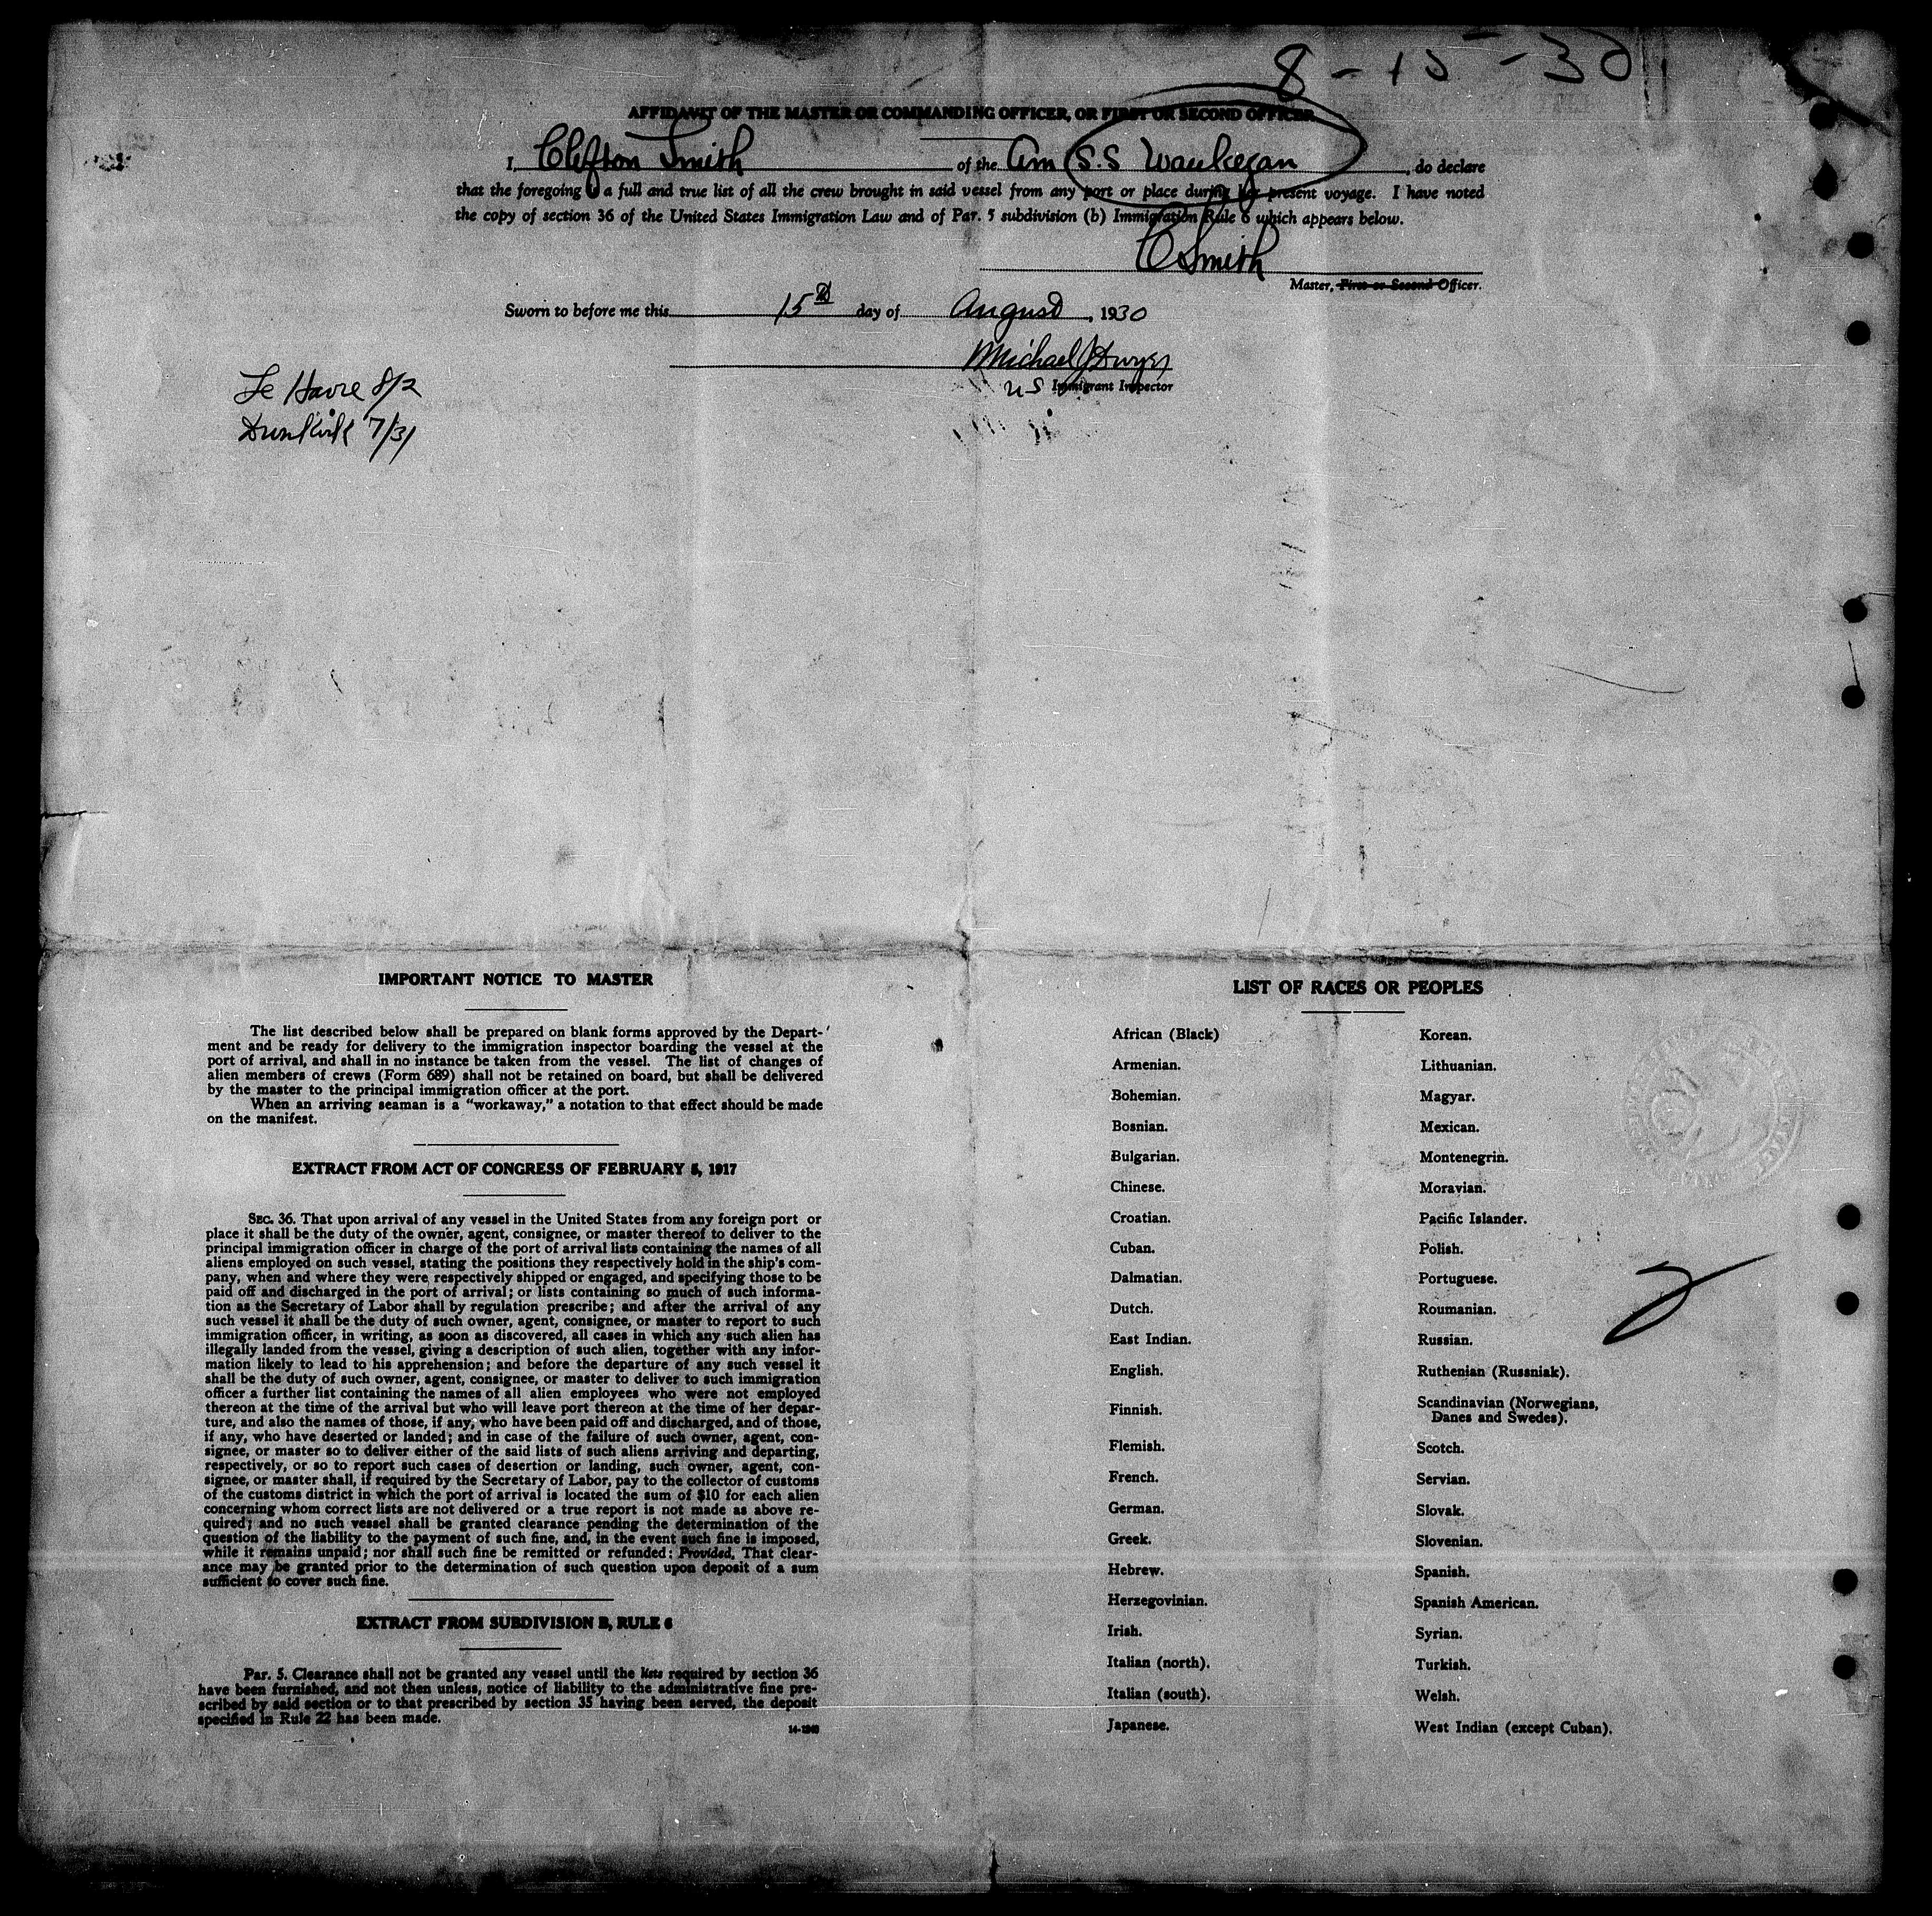 8-15-30
AFFIDAVIT OF THE MASTER OR COMMANDING OFFICER, OR FIRST OR SECOND OFFICER
I, Clifton Smith of the Am S.S Waukegan, do declare
that the foregoing is a full and true list of all the crew brought in said vessel from any port or place during her present voyage. I have noted
the copy of section 36 of the United States Immigration Law and of Par. 5 subdivision (b) Immigration Rule 6 which appears below.
C Smith
Master, First or Second Officer.
Sworn to before me this 15th day of August, 1930
Michael J Dwyer
US Immigrant Inspector
Le Havre 8/2
Dunkirk 7/31
IMPORTANT NOTICE TO MASTER
The list described below shall be prepared on blank forms approved by the Depart-
ment and be ready for delivery to the immigration inspector boarding the vessel at the
port of arrival, and shall in no instance be taken from the vessel. The list of changes of
alien members of crews (Form 689) shall not be retained on board, but shall be delivered
by the master to the principal immigration officer at the port.
When an arriving seaman is a “workaway,” a notation to that effect should be made
on the manifest.
EXTRACT FROM ACT OF CONGRESS OF FEBRUARY 5, 1917
SEC. 36. That upon arrival of any vessel in the United States from any foreign port or
place it shall be the duty of the owner, agent, consignee, or master thereof to deliver to the
principal immigration officer in charge of the port of arrival lists containing the names of all
aliens employed on such vessel, stating the positions they respectively hold in the ship's com-
pany, when and where they were respectively shipped or engaged, and specifying those to be
paid off and discharged in the port of arrival; or lists containing so much of such informa-
tion as the Secretary of Labor shall by regulation prescribe; and after the arrival of any
such vessel it shall be the duty of such owner, agent, consignee, or master to report to such
immigration officer, in writing, as soon as discovered, all cases in which any such alien has
illegally landed from the vessel, giving a description of such alien, together with any infor-
mation likely to lead to his apprehension; and before the departure of any such vessel it
shall be the duty of such owner, agent, consignee, or master to deliver to such immigration
officer a further list containing the names of all alien employees who were not employed
thereon at the time of the arrival but who will leave port thereon at the time of her depar-
ture, and also the names of those, if any, who have been paid off and discharged, and of those,
if any, who have deserted or landed; and in case of the failure of such owner, agent, con-
signee, or master so to deliver either of the said lists of such aliens arriving and departing,
respectively, or so to report such cases of desertion or landing, such owner, agent, con-
signee, or master shall, if required by the Secretary of Labor, pay to the collector of customs
of the customs district in which the port of arrival is located the sum of $10 for each alien
concerning whom correct lists are not delivered or a true report is not made as above re-
quired; and no such vessel shall be granted clearance pending the determination of the
question of the liability to the payment of such fine, and, in the event such fine is imposed,
while it remains unpaid; nor shall such fine be remitted or refunded: Provided, That clear-
ance may be granted prior to the determination of such question upon deposit of a sum
sufficient to cover such fine.
EXTRACT FROM SUBDIVISION B, RULE 6
Par. 5. Clearance shall not be granted any vessel until the lists required by section 36
have been furnished, and not then unless, notice of liability to the administrative fine pre-
scribed by said section or to that prescribed by section 35 having been served, the deposit
specified in Rule 22 has been made.
LIST OF RACES OR PEOPLES
African (Black)
Armenian.
Bohemian.
Bosnian.
Bulgarian.
Chinese.
Croatian.
Cuban.
Dalmatian.
Dutch.
East Indian.
English.
Finnish.
Flemish.
French.
German.
Greek.
Hebrew.
Herzegovinian.
Irish.
Italian (north).
Italian (south).
Japanese.
Korean.
Lithuanian.
Magyar.
Mexican.
Montenegrin.
Moravian.
Pacific Islander.
Polish.
Portuguese.
Roumanian.
Russian.
Ruthenian (Russniak).
Scandinavian (Norwegians,
Danes and Swedes).
Scotch.
Servian.
Slovak.
Slovenian.
Spanish.
Spanish American.
Syrian.
Turkish.
Welsh.
West Indian (except Cuban).